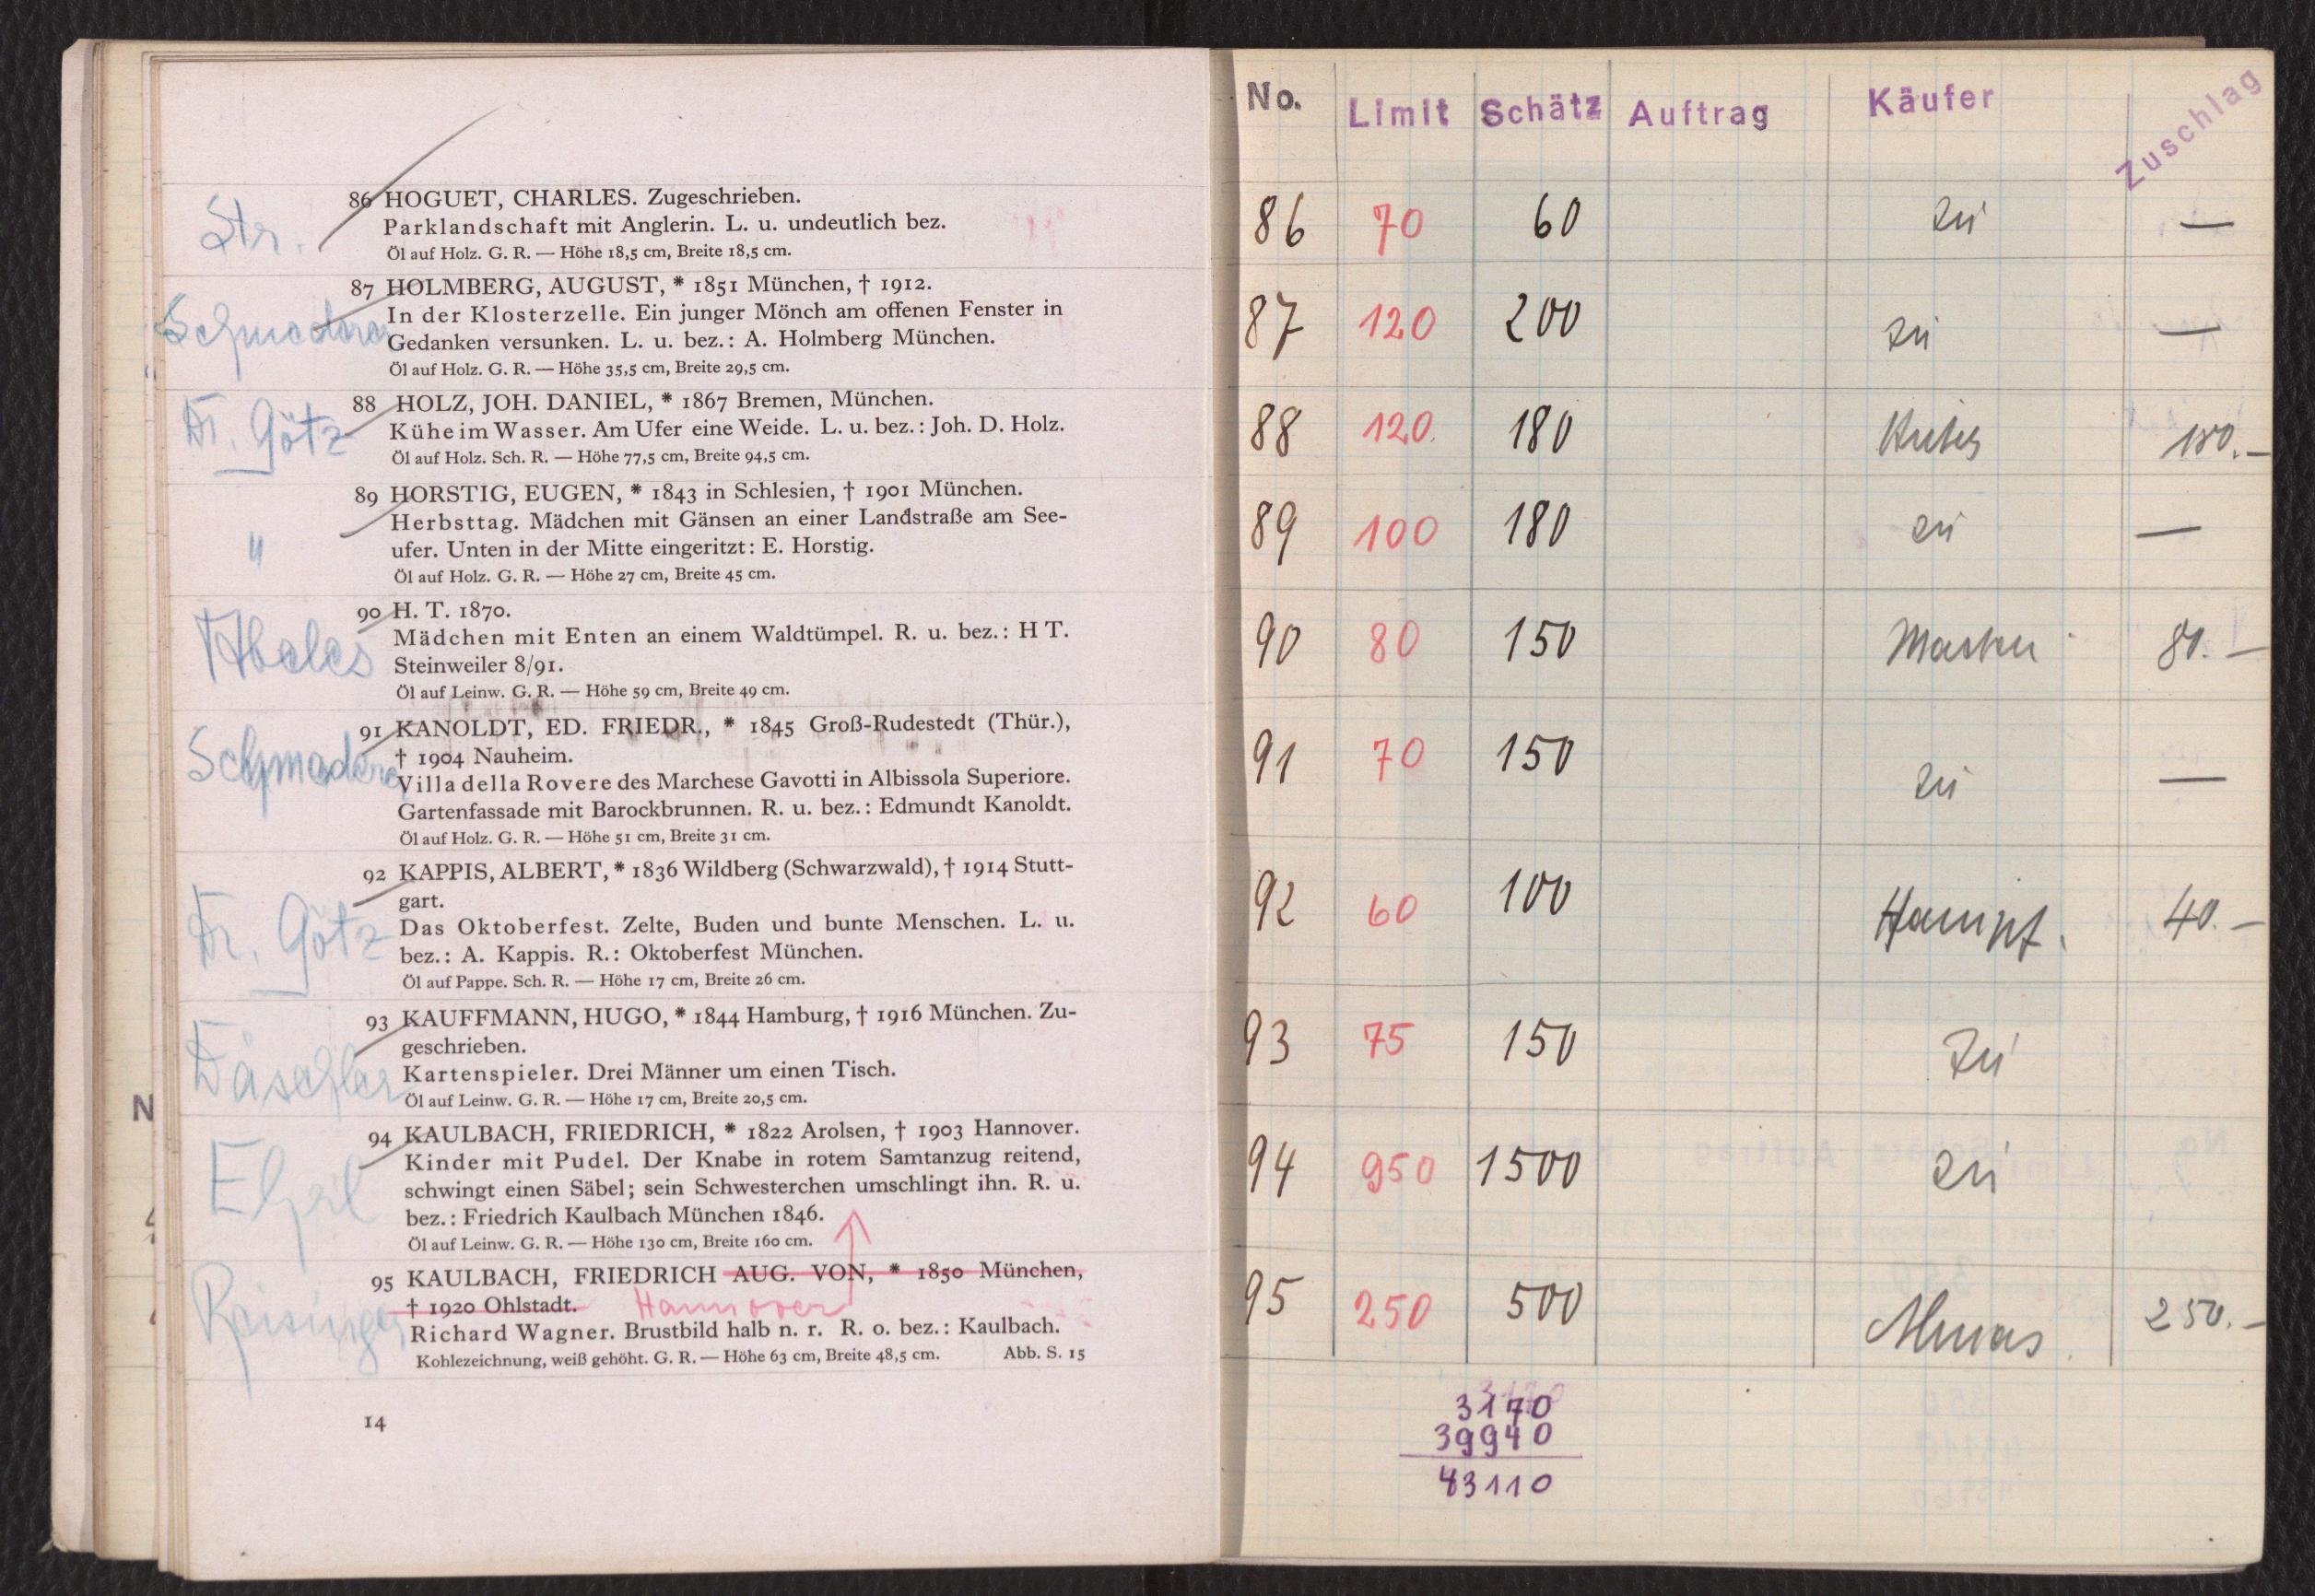 Str.
86 HOGUET, CHARLES. Zugeschrieben.
Parklandschaft mit Anglerin. L. u. undeutlich bez.
Öl auf Holz. G. R. — Höhe 18,5 cm, Breite 18,5 cm.
87 HOLMBERG, AUGUST, * 1851 München, † 1912.
In der Klosterzelle. Ein junger Mönch am offenen Fenster in
Gedanken versunken. L. u. bez.: A. Holmberg München.
Öl auf Holz. G. R. — Höhe 35,5 cm, Breite 29,5 cm.
Dr. Götz
88 HOLZ, JOH. DANIEL, * 1867 Bremen, München.
Kühe im Wasser. Am Ufer eine Weide. L. u. bez.: Joh. D. Holz.
Öl auf Holz. Sch. R. — Höhe 77,5 cm, Breite 94,5 cm.
"
89 HORSTIG, EUGEN, * 1843 in Schlesien, † 1901 München.
Herbsttag. Mädchen mit Gänsen an einer Landstraße am See-
ufer. Unten in der Mitte eingeritzt: E. Horstig.
Öl auf Holz. G. R. — Höhe 27 cm, Breite 45 cm.
Abeles
90 H. T. 1870.
Mädchen mit Enten an einem Waldtümpel. R. u. bez.: H T.
Steinweiler 8/91.
Öl auf Leinw. G. R. — Höhe 59 cm, Breite 49 cm.
Schmaderer
91 KANOLDT, ED. FRIEDR., * 1845 Groß-Rudestedt (Thür.),
† 1904 Nauheim.
Villa della Rovere des Marchese Gavotti in Albissola Superiore.
Gartenfassade mit Barockbrunnen. R. u. bez.: Edmundt Kanoldt.
Öl auf Holz. G. R. — Höhe 51 cm, Breite 31 cm.
Dr. Götz
92 KAPPIS, ALBERT, * 1836 Wildberg (Schwarzwald), † 1914 Stutt-
gart.
Das Oktoberfest. Zelte, Buden und bunte Menschen. L. u.
bez.: A. Kappis. R.: Oktoberfest München.
Öl auf Pappe. Sch. R. — Höhe 17 cm, Breite 26 cm.
Däschler
93 KAUFFMANN, HUGO, * 1844 Hamburg, † 1916 München. Zu-
geschrieben.
Kartenspieler. Drei Männer um einen Tisch.
Öl auf Leinw. G. R. — Höhe 17 cm, Breite 20,5 cm.
94 KAULBACH, FRIEDRICH, * 1822 Arolsen, † 1903 Hannover.
Kinder mit Pudel. Der Knabe in rotem Samtanzug reitend,
schwingt einen Säbel; sein Schwesterchen umschlingt ihn. R. u.
bez.: Friedrich Kaulbach München 1846.
Öl auf Leinw. G. R. — Höhe 130 cm, Breite 160 cm.
Reisinger
95 KAULBACH, FRIEDRICH AUG. VON, * 1850 München,
† 1920 Ohlstadt. Hannover
Richard Wagner. Brustbild halb n. r. R. o. bez.: Kaulbach.
Kohlezeichnung, weiß gehöht. G. R. — Höhe 63 cm, Breite 48,5 cm. Abb. S. 15
14
No. Limit Schätz Auftrag Käufer Zuschlag
86 70 60 —
87 120 200 —
88 120. 180
89 100 180 —
90 80 150 80.—
91 70 150 —
92 60 100 40.—
93 75 150
94 950 1500
95 250 500 250.—
3170
39940
43110